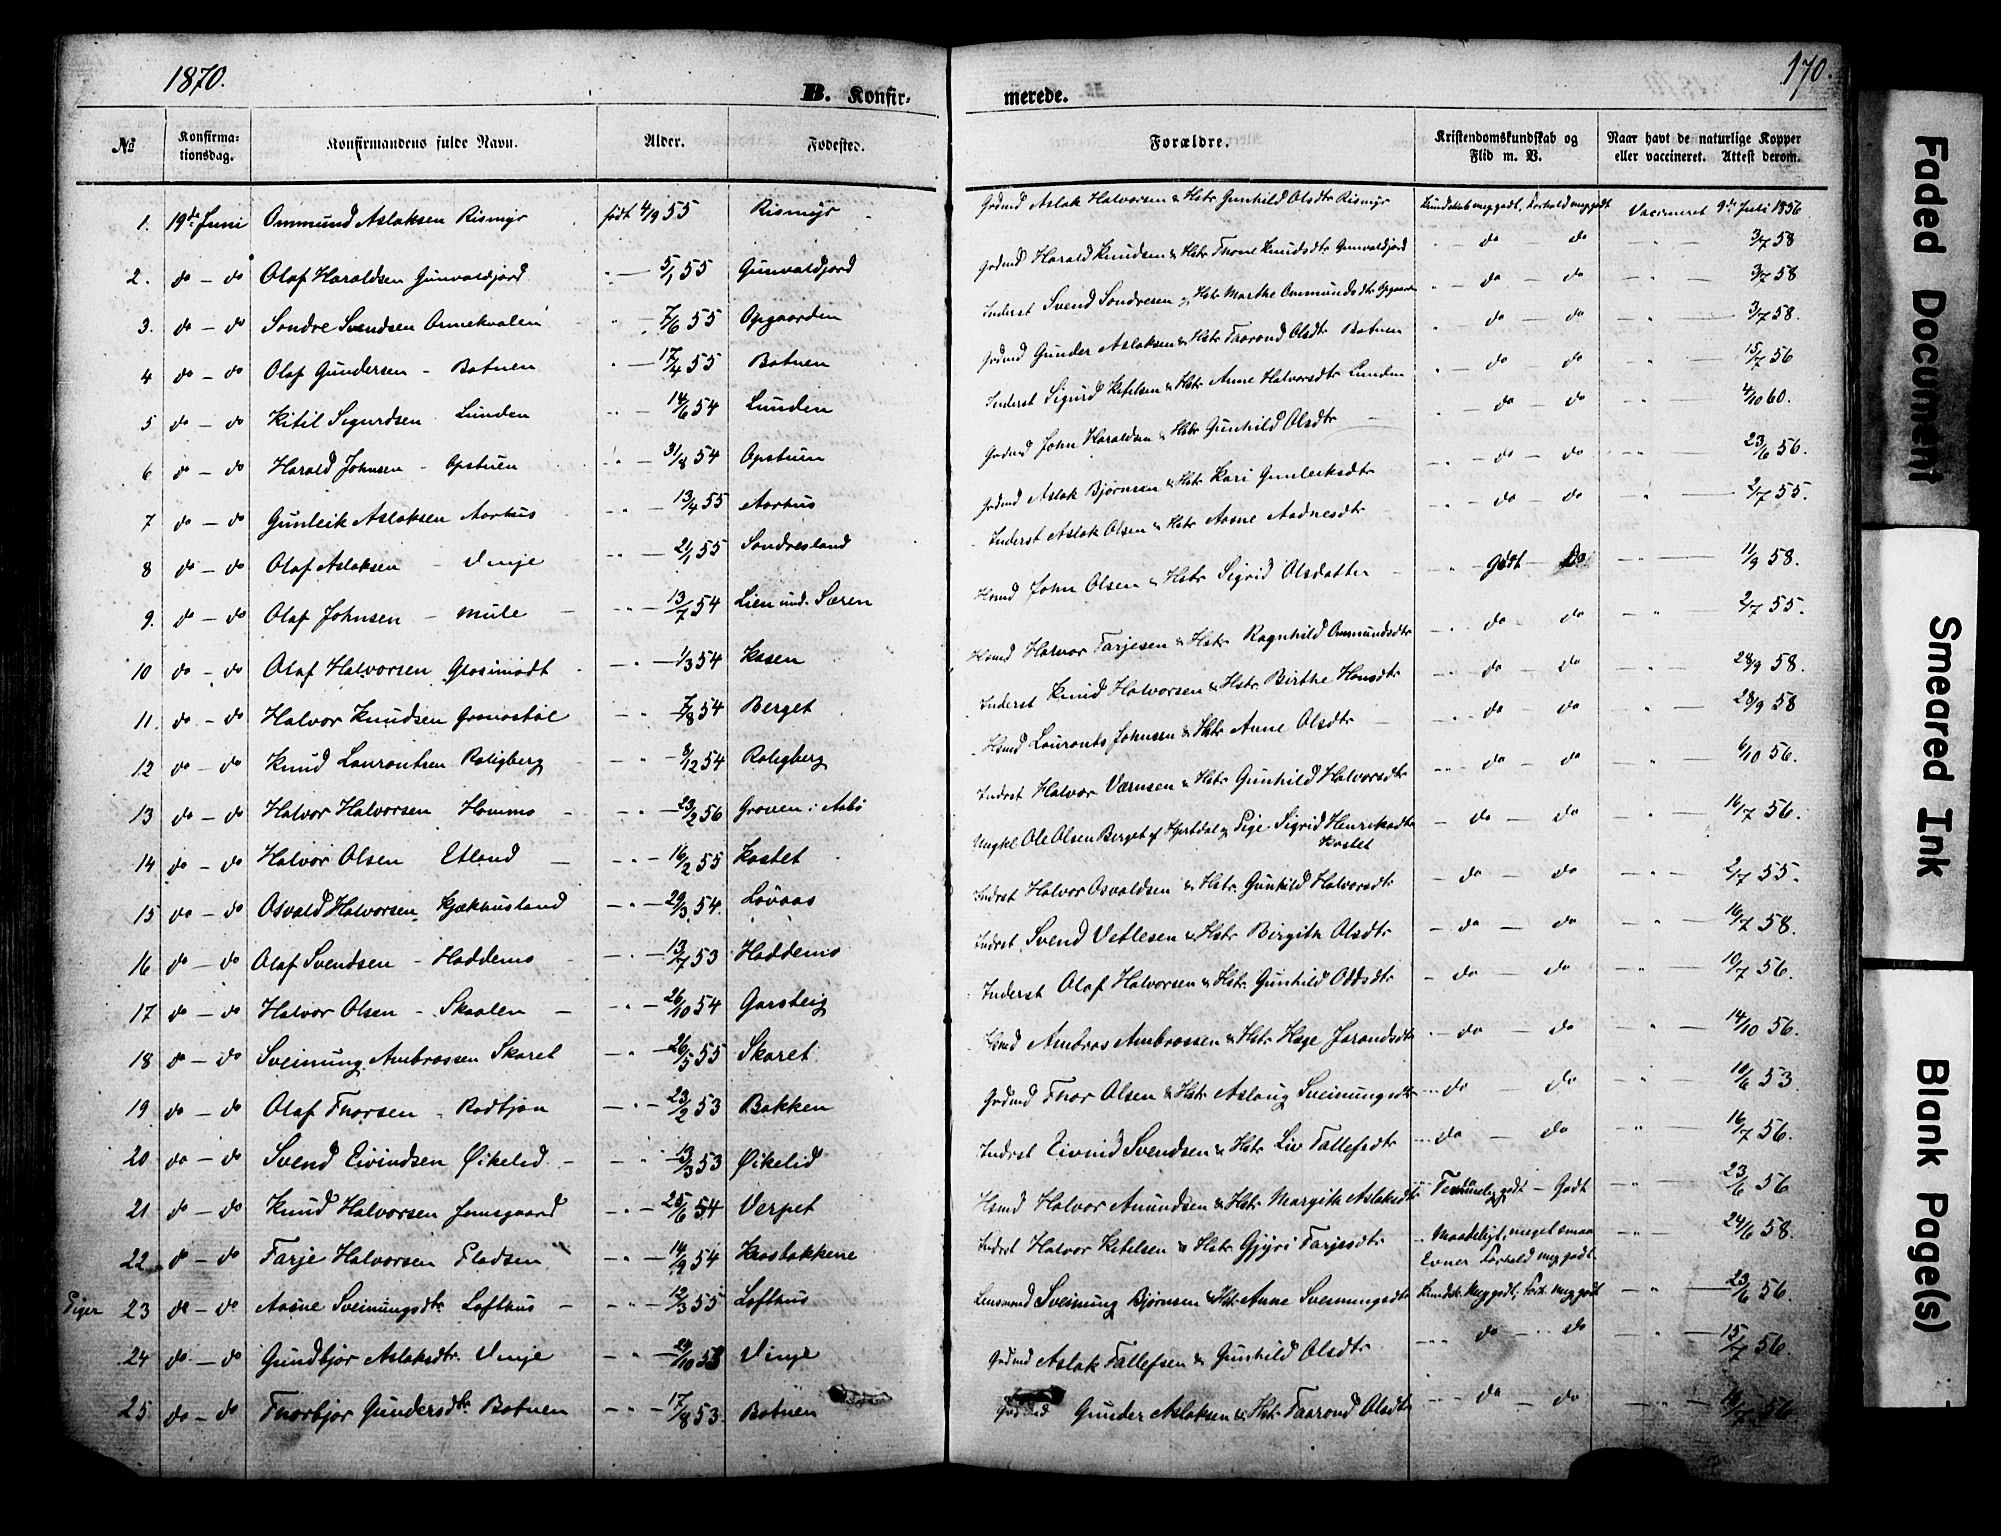 1870.
170.
B. Konfirmerede.
No
Konfirmationsdag.
Konfirmandens fulde Navn.
Alder.
Fødested.
Forældre.
Kristendomskundskab og Flid m. V.
Naar havt de naturlige Kopper eller vaccineret. Attest derom.
1. 19de Juni Ommund Aslaksen Rismyr født 4/9 55 Rismyr Grdmd Aslak Halvorsen & Hstr Gunhild Olsdtr Rismyr Kundskab meg godt, Forhold meg godt Vaccineret 9de Juli 1856
2. do – do Olaf Haraldsen Gunvaldjord " — 5/1 55 Gunvaldjord Grdmd Harald Knudsen & Hstr Thone Knudsdtr Gunvaldjord " – do do " — 3/7 58
3. do – do Sondre Svendsen Ormekvalen " — 7/6 55 Opgaarden Inderst Svend Sondresen & Hstr Marthe Ommundsdtr Opgaarden " – do – do " — 3/7 58
4 do – do Olaf Gundersen – Botnen " — 17/4 55 Botnen Grdmd Gunder Aslaksen & Hstr Taarond Olsdtr Botnen " – do – do " — 3/7 58.
5 do – do Kitil Sigurdsen Lunden " — 14/6 54 Lunden Inderst Sigurd Ketelsen & Hstr Anne Halvorsdtr Lunden " – do – do " — 15/7 56
6 do – do Harald Johnsen – Opstuen " — 31/8 54 Opstuen Grdmd John Haraldsen & Hstr Gunhild Olsdtr — " – do – do " — 4/10 60.
7 do – do Gunleik Aslaksen Aarhus " — 13/4 55 Aarhus Grdmd Aslak Bjørnsen & Hstr Kari Gunleiksdtr " – do – do " — 23/6 56.
8 do – do Olaf Aslaksen – Vinje " — 21/1 55 Sondresland Inderst Aslak Olsen & Hstr Aasne Aadnesdtr " – do – do " — 2/7 55.
9. do – do Olaf Johnsen – Mule — " — 13/7 54 Lien und. Særen Hsmd John Olsen & Hstr Sigrid Olsdatter — " – Godt – Do " — 11/9 58.
10 do – do Olaf Halvorsen Glosimodt " — 1/3 54 Kasen Hsmd Halvor Tarjesen & Hstr Ragnhild Ommundsdtr " do do " — 2/7 55.
11. do – do Halvor Knudsen Grovestøl " — 7/8 54 Berget Inderst Knud Halvorsen & Hstr Birthe Hansdtr " – do – do " — 28/9 58.
12 do – do Knud Laurantsen Roligberg " — 8/12 54 Roligberg Hsmd Laurants Johnsen & Hstr Anne Olsdtr — " – do – do " — 28/9 58
13 do – do Halvor Halvorsen Hommo — " — 23/2 56 Groven i Aabø Indrst Halvor Værnsen & Hstr Gunhild Halvorsdtr " do – do " — 6/10 56.
14 do – do Halvor Olsen Etland — " — 16/2 55 Kostet Ungkl Ole Olsen Berget af Hjertdal og Pige Sigrid Henriksdtr Kostet — do – do " — 16/7 56.
15 do – do Osvald Halvorsen Kjækhusland — " — 29/3 54. Løvaas Indrst Halvor Osvaldsen & Hstr Gunhild Halvorsdtr — do – do " — 2/7 55.
16 do – do Olaf Svendsen – Haddemo — " — 13/7 53 Haddemo Indrst Svend Vetlesen & Hstr Birgith Olsdtr — do – do " — 16/7 58.
17 do – do Halvor Olsen – Skaalen — " — 26/10 54 Garsteig Inderst Olaf Halvorsen & Hstr Gunhild Oddsdtr — do – do " — 10/7 56.
18 do – do Sveinung Ambrossen Skaret — " — 26/5 55 Skaret Hsmd Ambros Ambrossen & Hstr Hæge Jorandsdtr " do – do " — 14/10 56.
19 do – do Olaf Thorsen – Rodtjøn — " — 23/2 53 Bakken Grdmd Thor Olsen & Hstr Aslaug Sveinungsdtr " do – do " — 10/6 53.
20 do – do Svend Eivindsen Øikelid – — " — 13/3 53 Øikelid Indrst Eivind Svendsen & Hstr Liv Tallefsdtr " do – do " — 16/7 56.
21 do – do Knud Halvorsen Jamsgaard — " — 25/6 54 Verpet Hsmd Halvor Amundsen & Hstr Margith Aslaksdtr " Temmelig godt – Godt " — 23/6 56
22 do – do Tarje Halvorsen Fladsen " — 14/9 54 Krosbakkene Indrst Halvor Ketelsen & Hstr Gjyri Tarjesdtr " Maadeligt, meget smaa Evner Forhold meg godt " — 24/6 58.
Piger 23 do – do Aasne Sveinungsdtr Lofthus – — " — 12/3 55 Lofthus Lensmand Sveinung Bjørnsen & Hstr Anne Sveinungsdtr Kundsk. Meg godt; Forh. Meg godt " — 23/6 56.
24 do – do Gundbjør Aslaksdtr. Vinje — " — 29/10 53 Vinje Grdmd Aslak Tallefsen & Gunhild Olsdtr " do – do " — 15/7 56.
25 do – do Thorbjør Gundersdtr Botnen — " — 17/8 53. Botnen Grdmd Gunder Aslaksen & Hstr Taarond Olsdtr — do – do " — 16/7 56
Faded Document
Smeared Ink
Blank Page(s)